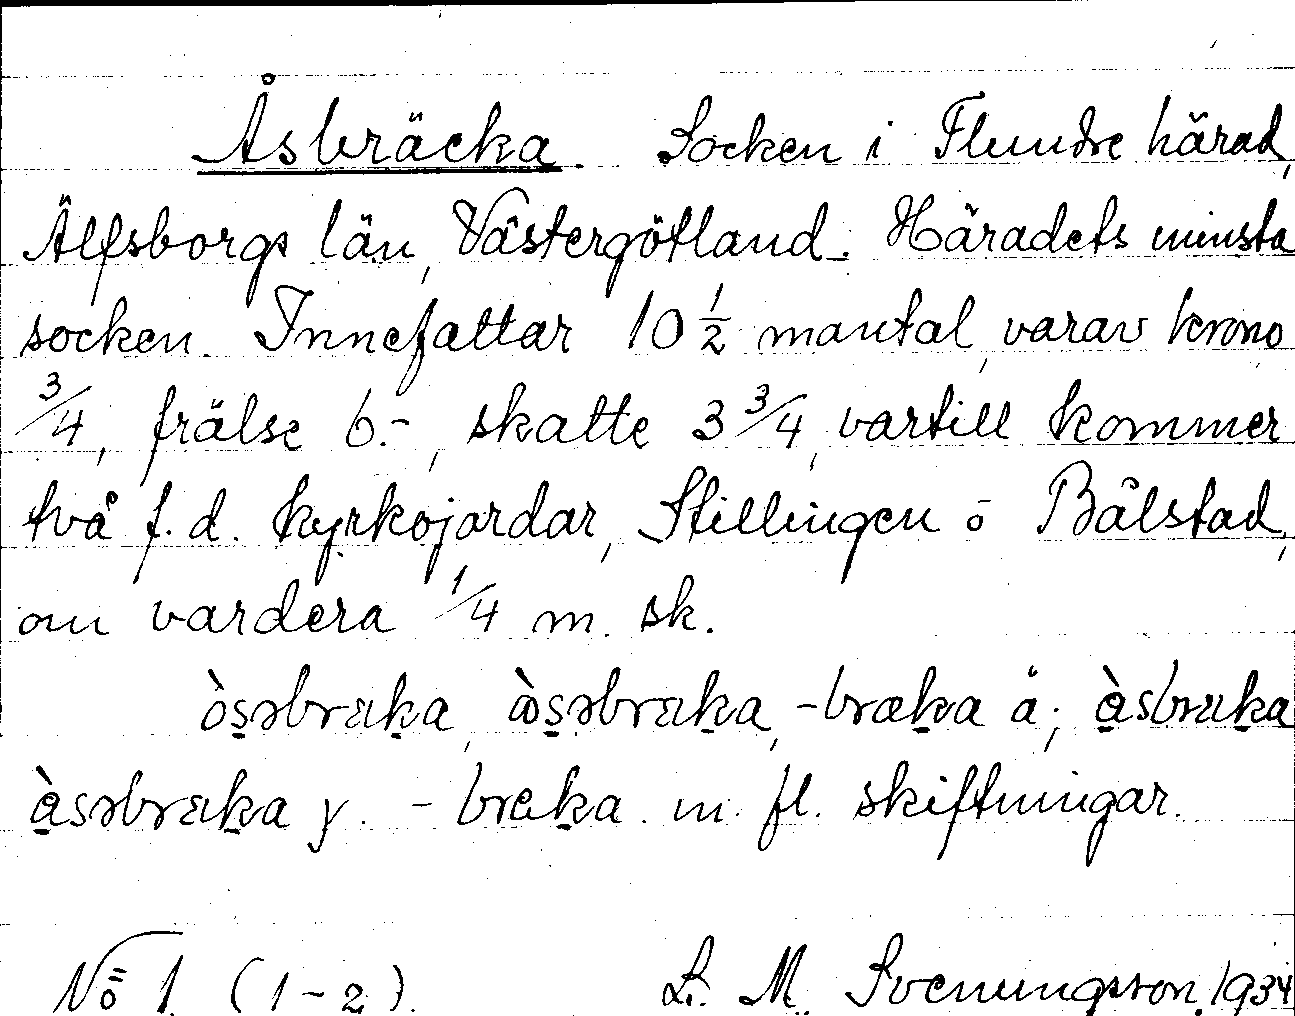 Åsbräcka. Socken i Flundre härad,
Älfsborgs län, Västergötland. Häradets minsta
socken. Innefattar 10 1/2 mantal, varav krono
3/4, frälse 6.-, skatte 3 3/4, vartill kommer
två f.d. kyrkojardar, Stillingen o Bålstad,
om vardera 1/4 m. sk.
òsəbræka, ɷ̀səbræka, -bræka ä; àsbræka
àsəbræka y. -breka m. fl. skiftningar.
No 1. (1-2). L. M. Svenungsson. 1934